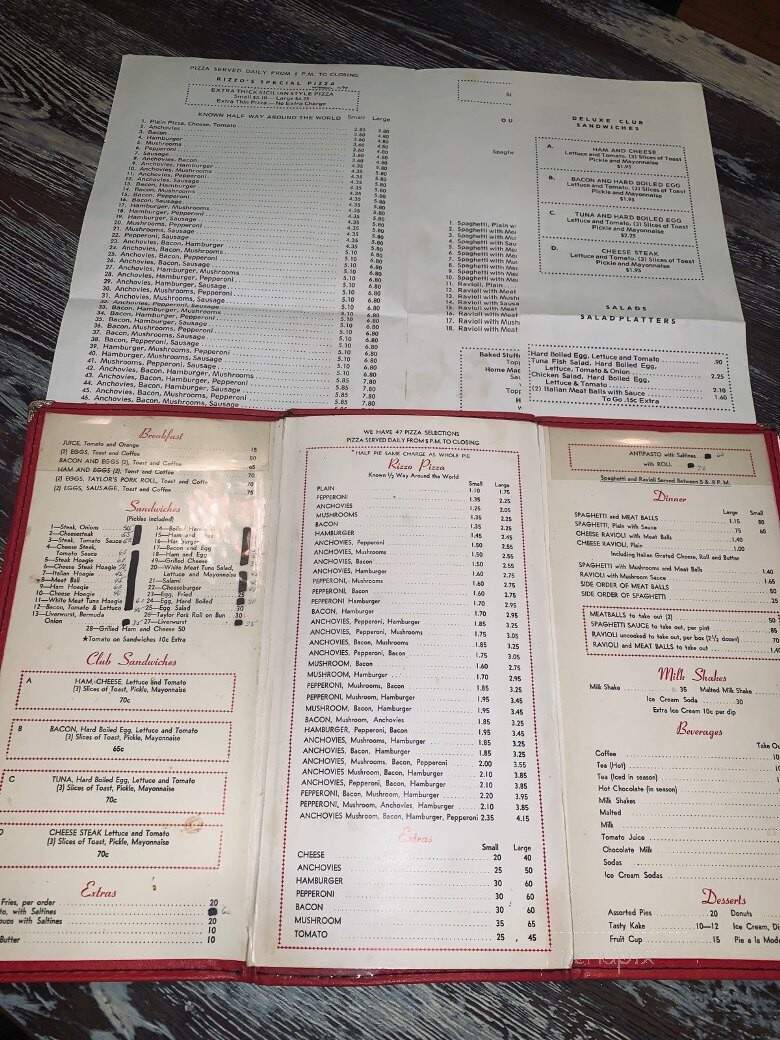 PIZZA SERVED DAILY FROM 5 P.M. TO CLOSING
RIZZO'S SPECIAL PIZZA
EXTRA THICK SICILIAN STYLE PIZZA
Extra Thin Pizza — No Extra Charge
KNOWN HALF WAY AROUND THE WORLD Small Large
1. Plain Pizza, Cheese, Tomato
2. Anchovies
3. Bacon
4. Hamburger
5. Mushrooms
6. Pepperoni
7. Sausage
8. Anchovies, Bacon
9. Anchovies, Hamburger
10. Anchovies, Mushrooms
11. Anchovies, Pepperoni
12. Anchovies, Sausage
13. Bacon, Hamburger
14. Bacon, Mushrooms
15. Bacon, Pepperoni
16. Bacon, Sausage
17. Hamburger, Mushrooms
18. Hamburger, Pepperoni
19. Hamburger, Sausage
20. Mushrooms, Pepperoni
21. Mushrooms, Sausage
22. Pepperoni, Sausage
23. Anchovies, Bacon, Hamburger
24. Anchovies, Bacon, Mushrooms
25. Anchovies, Bacon, Pepperoni
26. Anchovies, Bacon, Sausage
27. Anchovies, Hamburger, Mushrooms
28. Anchovies, Hamburger, Pepperoni
29. Anchovies, Hamburger, Sausage
30. Anchovies, Mushrooms, Pepperoni
31. Anchovies, Mushrooms, Sausage
32. Anchovies, Pepperoni, Sausage
33. Bacon, Hamburger, Mushrooms
34. Bacon, Hamburger, Pepperoni
35. Bacon, Hamburger, Sausage
36. Bacon, Mushrooms, Pepperoni
37. Bacon, Mushrooms, Sausage
38. Bacon, Pepperoni, Sausage
39. Hamburger, Mushrooms, Pepperoni
40. Hamburger, Mushrooms, Sausage
41. Mushrooms, Pepperoni, Sausage
42. Anchovies, Bacon, Hamburger, Mushrooms
43. Anchovies, Bacon, Hamburger, Pepperoni
44. Anchovies, Bacon, Hamburger, Sausage
45. Anchovies, Bacon, Mushrooms, Pepperoni
46. Anchovies, Bacon, Mushrooms, Sausage
O U
Spaghe
1. Spaghetti, Plain w
2. Spaghetti with Me
3. Spaghetti with Mu
4. Spaghetti with Sau
5. Spaghetti with Me
6. Spaghetti with Me
7. Spaghetti with Me
8. Spaghetti with Me
9. Spaghetti with Me
10. Spaghetti with Me
11. Ravioli, Plain
12. Ravioli with Meat
13. Ravioli with Mush
14. Ravioli with Sausa
15. Ravioli with Meat
16. Ravioli with Meat
17. Ravioli with Mush
18. Ravioli with Meat
Baked Stuff
Top
Home Mad
DELUXE CLUB
SANDWICHES
A. HAM AND CHEESE
Lettuce and Tomato, (3) Slices of Toast
Pickle and Mayonnaise
$1.95
B. BACON AND HARD BOILED EGG
Lettuce and Tomato, (3) Slices of Toast
Pickle and Mayonnaise
$1.95
C. TUNA AND HARD BOILED EGG
Lettuce and Tomato, (3) Slices of Toast
Pickle and Mayonnaise
$2.25
D. CHEESE STEAK
Lettuce and Tomato, (3) Slices of Toast
Pickle and Mayonnaise
$1.95
SALADS
SALAD PLATTERS
Hard Boiled Egg, Lettuce and Tomato .90
Tuna Fish Salad, Hard Boiled Egg,
Lettuce, Tomato & Onion 2.25
Chicken Salad, Hard Boiled Egg,
Lettuce & Tomato 2.10
(2) Italian Meat Balls with Sauce 1.60
To Go .15c Extra
Breakfast
JUICE, Tomato and Orange 15
(2) EGGS, Toast and Coffee 50
BACON AND EGGS (2), Toast and Coffee 65
HAM AND EGGS (2), Toast and Coffee 70
(2) EGGS, TAYLOR'S PORK ROLL, Toast and Coffee 70
(2) EGGS, SAUSAGE, Toast and Coffee 75
Sandwiches
(Pickles Included)
1—Steak, Onions
2—Cheesesteak
3—Steak, Tomato Sauce
4—Cheese Steak,
Tomato Sauce
5—Steak Hoagie
6—Cheese Steak Hoagie
7—Italian Hoagie
8—Meat Ball
9—Ham Hoagie
10—Cheese Hoagie
11—White Meat Tuna Hoagie
12—Bacon, Tomato & Lettuce
13—Liverwurst, Bermuda
Onion
14—Boiled Ham
15—Ham and
16—Hamburger
17—Bacon and Egg
18—Ham and Egg
19—Grilled Cheese
20—White Meat Tuna Salad,
Lettuce and Mayonnaise
21—Salami
22—Cheeseburger
23—Egg, Fried
24—Egg, Hard Boiled
25—Egg Salad 30
26—Taylor Pork Roll on Bun 30
27—Liverwurst
28—Grilled Ham and Cheese 50
★Tomato on Sandwiches 10c Extra
Club Sandwiches
A HAM, CHEESE, Lettuce and Tomato
(3) Slices of Toast, Pickle, Mayonnaise
70c
B BACON, Hard Boiled Egg, Lettuce and Tomato
(3) Slices of Toast, Pickle, Mayonnaise
65c
C TUNA, Hard Boiled Egg, Lettuce and Tomato
(3) Slices of Toast, Pickle, Mayonnaise
70c
CHEESE STEAK Lettuce and Tomato
(3) Slices of Toast, Pickle, Mayonnaise
70c
Extras
Fries, per order 20
to, with Saltines
oups with Saltines 20
10
Butter 10
WE HAVE 47 PIZZA SELECTIONS
PIZZA SERVED DAILY FROM 5 P.M. TO CLOSING
*HALF PIE SAME CHARGE AS WHOLE PIE
Rizzo Pizza
Known ½ Way Around the World
Small Large
PLAIN 1.10 1.75
PEPPERONI 1.35 2.25
ANCHOVIES 1.25 2.05
MUSHROOMS 1.35 2.25
BACON 1.35 2.25
HAMBURGER 1.45 2.45
ANCHOVIES, Pepperoni 1.50 2.55
ANCHOVIES, Mushrooms 1.50 2.55
ANCHOVIES, Bacon 1.50 2.55
ANCHOVIES, Hamburger 1.60 2.75
PEPPERONI, Mushrooms 1.60 2.75
PEPPERONI, Bacon 1.60 2.75
PEPPERONI Hamburger 1.70 2.95
BACON, Hamburger 1.70 2.95
ANCHOVIES, Pepperoni, Hamburger 1.85 3.25
ANCHOVIES, Pepperoni, Mushrooms 1.75 3.05
ANCHOVIES, Bacon, Mushrooms 1.85 3.25
ANCHOVIES, Pepperoni, Bacon 1.75 3.05
MUSHROOM, Bacon 1.60 2.75
MUSHROOM, Hamburger 1.70 2.95
PEPPERONI, Mushrooms, Bacon 1.85 3.25
PEPPERONI, Mushroom, Hamburger 1.95 3.45
MUSHROOM, Bacon, Hamburger 1.95 3.45
BACON, Mushroom, Anchovies 1.85 3.25
HAMBURGER, Pepperoni, Bacon 1.95 3.45
ANCHOVIES, Mushrooms, Hamburger 1.85 3.25
ANCHOVIES, Bacon, Hamburger 1.85 3.25
ANCHOVIES, Mushrooms, Bacon, Pepperoni 2.00 3.55
ANCHOVIES Mushroom, Bacon, Hamburger 2.10 3.85
ANCHOVIES, Pepperoni, Bacon, Hamburger 2.10 3.85
PEPPERONI, Bacon, Mushroom, Hamburger 2.20 3.95
PEPPERONI, Mushroom, Anchovies, Hamburger 2.10 3.85
ANCHOVIES Mushroom, Bacon, Hamburger, Pepperoni 2.35 4.15
Extras
Small Large
CHEESE 20 40
ANCHOVIES 25 50
HAMBURGER 30 60
PEPPERONI 30 60
BACON 30 60
MUSHROOM 35 65
TOMATO 25 45
ANTIPASTO with Saltines
with ROLL
Spaghetti and Ravioli Served Between 5 & 8 P.M.
Dinner
Large Small
SPAGHETTI and MEAT BALLS 1.15 80
SPAGHETTI, Plain with Sauce .75 60
CHEESE RAVIOLI with Meat Balls 1.40
CHEESE RAVIOLI, Plain 1.00
Including Italian Grated Cheese, Roll and Butter
SPAGHETTI with Mushrooms and Meat Balls 1.40
RAVIOLI with Mushroom Sauce 1.65
SIDE ORDER OF MEAT BALLS 50
SIDE ORDER OF SPAGHETTI .25
MEATBALLS to take out (2) 50
SPAGHETTI SAUCE to take out, per pint 85
RAVIOLI uncooked to take out, per box (2½ dozen) 70
RAVIOLI and MEAT BALLS to take out 1.40
Milk Shakes
Milk Shake 35 Malted Milk Shake
Ice Cream Soda .30
Extra Ice Cream 10c per dip
Beverages
Take Ou
Coffee 10
Tea (Hot)
Tea (Iced in season)
Hot Chocolate (in season)
Milk Shakes
Malted
Milk
Tomato Juice
Chocolate Milk
Sodas
Ice Cream Sodas
Desserts
Assorted Pies 20 Donuts
Tasty Kake 10—12 Ice Cream, Di
Fruit Cup 15 Pie a la Mode